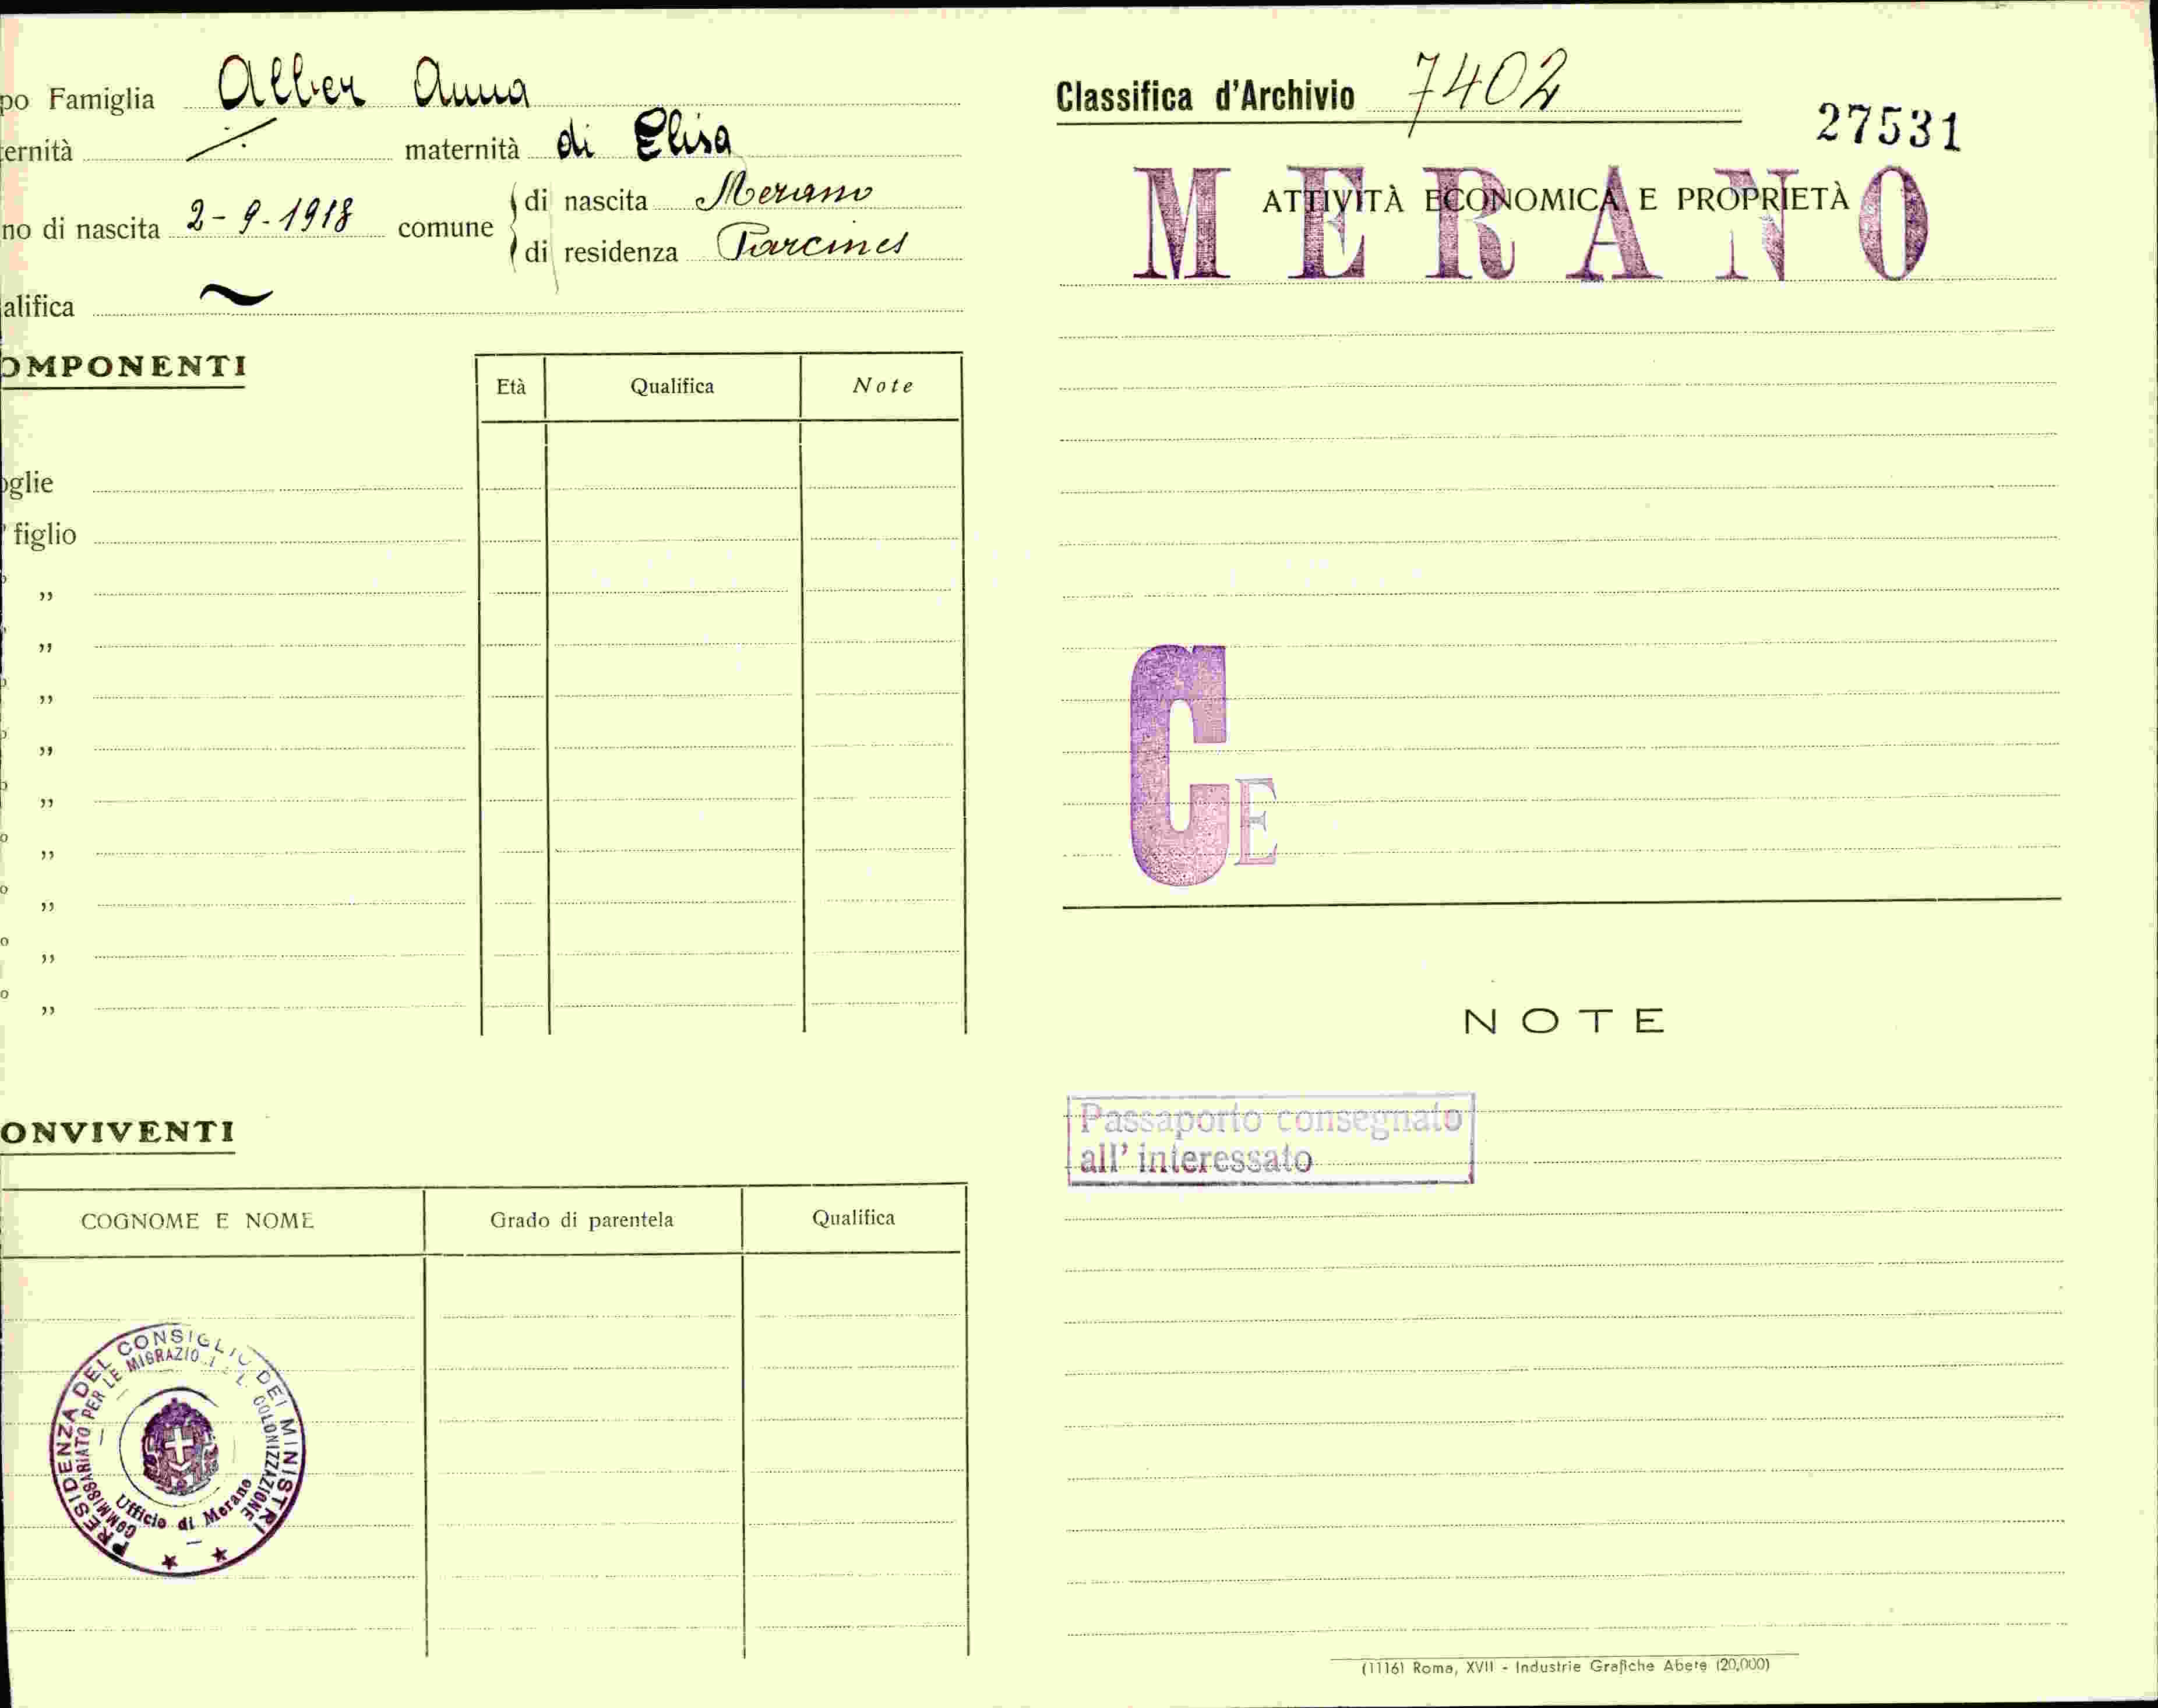 po Famiglia Alber Anna
ernità ./. maternità di Elisa
no di nascita 2-9-1918 comune di nascita Merano
di residenza Parcines
alifica ~
OMPONENTI
Età Qualifica Note
oglie
figlio
"
"
"
"
"
"
"
"
"
ONVIVENTI
COGNOME E NOME Grado di parentela Qualifica
PRESIDENZA DEL CONSIGLIO DEI MINISTRI
COMMISSARIATO PER LE MIGRAZIO COLONIZZAZIONE
Ufficio di Merano
Classifica d'Archivio 7402
27531
MERANO
ATTIVITÀ ECONOMICA E PROPRIETÀ
CE
NOTE
Passaporto consegnato
all' interessato
(1116) Roma, XVII - Industrie Grafiche Abete (20,000)